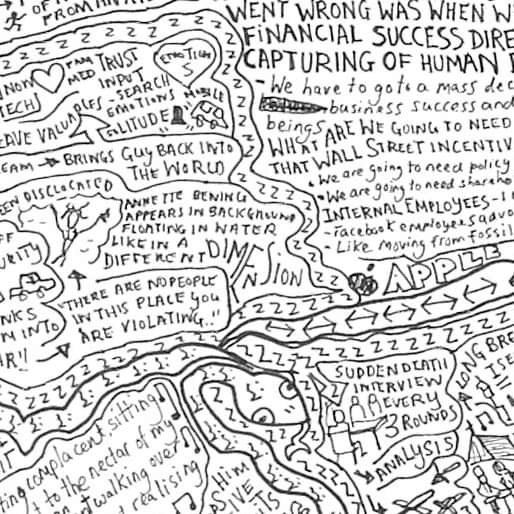 WENT WRONG WAS WHEN
FINANCIAL SUCCESS DIRE
CAPTURING OF HUMAN
- We have to gots a mass dec
business success and
beings
WHAT ARE WE GOING TO NEED
THAT WALL STREET INCENTIV
• We are going to need policy
• We are going to need shareho
INTERNAL EMPLOYEES -
- Facebook employees advo
- Like moving from fossil
APPLE
TRUST
INPUT
- SEARCH
EMOTIONS
MOBILE
EMOTION
S
KNOW
TECH)
MED
LEAVE VALUABLES
SOLITUDE
EAM → BRINGS GUY BACK INTO
THE WORLD
EEN DISCLOCATED
ANNETTE BENING
APPEARS IN BACKGROUND
FLOATING IN WATER
LIKE IN A
DIFFERENT DIMENSION
URITY
"THERE ARE NO PEOPLE
IN THIS PLACE YOU
ARE VIOLATING.."
NKS
N INTO
R!!
SUDDEN DEATH
INTERVIEW
EVERY
3 ROUNDS
ANALYSIS
LONG BRE
complacent sitting
to the nectar of my
walking over
realising
HIM